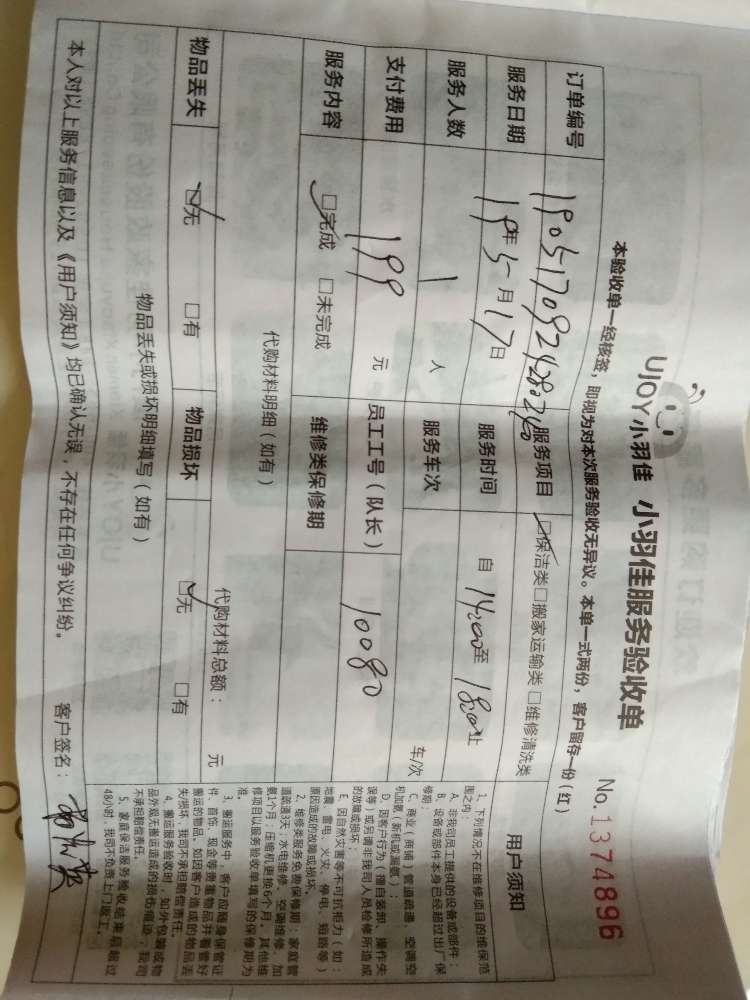 UJOY小羽佳 小羽佳服务验收单
No.1374896
本验收单一经核签，即视为对本次服务验收无异议。本单一式两份，客户留存一份(红)
订单编号 服务项目 保洁类 □搬家运输类 □维修清洗类
服务日期 19年5月17日 服务时间 自 14:00 至 18:00 止
服务人数 1 人 服务车次 车/次
支付费用 199 元 员工工号(队长) 10080
服务内容 完成 □未完成 维修类保修期
代购材料明细(如有)
代购材料总额: 元
物品丢失 无 □有 物品损坏 无 □有
物品丢失或损坏明细填写(如有)
本人对以上服务信息以及《用户须知》均已确认无误，不存在任何争议纠纷。 客户签名:
用户须知
1、下列情况不在维修项目的维保范
围之内:
A、非我司员工提供的设备或部件;
B、设备或部件本身已经超过出厂保
修期;
C、商业(商铺)管道疏通、空调空
机加氨(新机或漏氨);
D、因客户行为(擅自装卸、操作失
误等)或另请非我司人员检修所造成
的故障或损坏;
E、因自然灾害等不可抗拒力(如:
地震、雷电、火灾、停电、短路等)
原因造成的故障或损坏。
2、维修类服务免费保修期:家庭管
道疏通3天;水电维修、空调维修、加
氨1个月;压缩机更换6个月。其他维
修项目以服务验收单填写的保修期为
准。
3、搬运服务中，客户应随身保管证
件、首饰、现金等贵重物品并看管好
搬运的物品，如因客户造成的物品丢
失/损坏，我司不承担赔偿责任。
4、搬运服务验收时，如外包装或物
品外观无搬运造成的损伤痕迹，我司
不承担赔偿责任。
5、家庭保洁服务验收结束后超过
48小时，我司不负责上门返工。